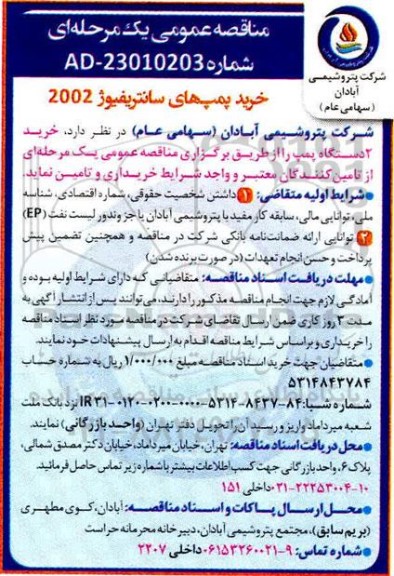 مناقصه عمومی یک مرحله‌ای
شماره AD-23010203
شرکت پتروشیمی
آبادان
(سهامی عام)
خرید پمپ‌های سانتریفیوژ 2002
شرکت پتروشیمی آبادان (سهامی عام) در نظر دارد، خرید
۲دستگاه پمپ را از طریق برگزاری مناقصه عمومی یک مرحله‌ای
از تامین‌کنندگان معتبر و واجد شرایط خریداری و تامین نماید.
شرایط اولیه متقاضی: ۱ داشتن شخصیت حقوقی، شماره اقتصادی، شناسه
ملی، توانایی مالی، سابقه کار مفید با پتروشیمی آبادان یا جز وندور لیست نفت (EP)
۲ توانایی ارائه ضمانت‌نامه بانکی شرکت در مناقصه و همچنین تضمین پیش
پرداخت و حسن انجام تعهدات (در صورت برنده شدن)
مهلت دریافت اسناد مناقصه: متقاضیانی که دارای شرایط اولیه بوده و
آمادگی لازم جهت انجام مناقصه مذکور را دارند، می‌توانند پس از انتشار آگهی به
مدت ۳ روز کاری ضمن ارسال تقاضای شرکت در مناقصه مورد نظر اسناد مناقصه
را خریداری و براساس شرایط مناقصه اقدام به ارسال پیشنهادات خود نمایند.
متقاضیان جهت خرید اسناد مناقصه مبلغ ۱/۰۰۰/۰۰۰ ریال به شماره حساب
۵۳۱۴۸۴۳۷۸۴
شماره شبا: IR۳۱-۰۱۲۰-۰۲۰۰-۰۰۰۰-۵۳۱۴-۸۴۳۷-۸۴ نزد بانک ملت
شعبه میرداماد واریز و رسید آن را تحویل دفتر تهران (واحد بازرگانی) نمایند.
محل دریافت اسناد مناقصه: تهران، خیابان میرداماد، خیابان دکتر مصدق شمالی،
پلاک ۶، واحد بازرگانی جهت کسب اطلاعات بیشتر با شماره زیر تماس حاصل فرمائید.
۰۲۱-۲۲۲۵۳۰۰۴-۱۰ داخلی ۱۵۱
محل ارسال پاکات و اسناد مناقصه: آبادان، کوی مطهری
(بریم سابق)، مجتمع پتروشیمی آبادان، دبیرخانه محرمانه حراست
شماره تماس: ۹-۰۶۱۵۳۲۶۰۰۲۱ داخلی ۲۲۰۷